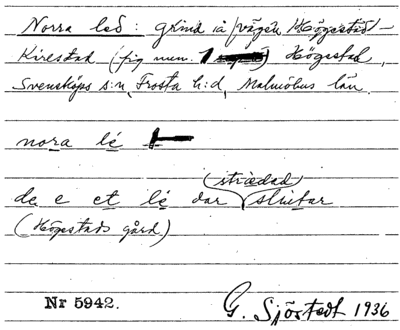 Norra led: grind å vägen Högestad-
Kirestad (fig men. 1) Högestad,
Svensköps s:n, Frosta h:d, Malmöhus län.
nora lé
de e et lé dar (striedad) slutar
(Högestads gård.)
Nr 5942.
G. Sjöstedt 1936